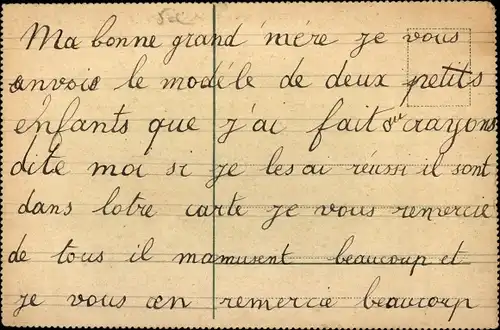 Ma bonne grand mére je vous
envois le modéle de deux petits
enfants que j'ai fait au crayons
dite moi si je les ai réussi il sont
dans lotre carte je vous remercie
de tous il mamusent beaucoup et
je vous en remercie beaucoup